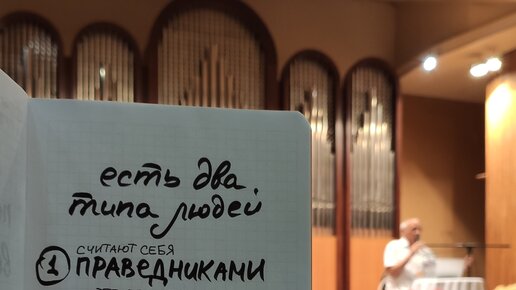 есть два
типа людей
1 считают себя
праведниками